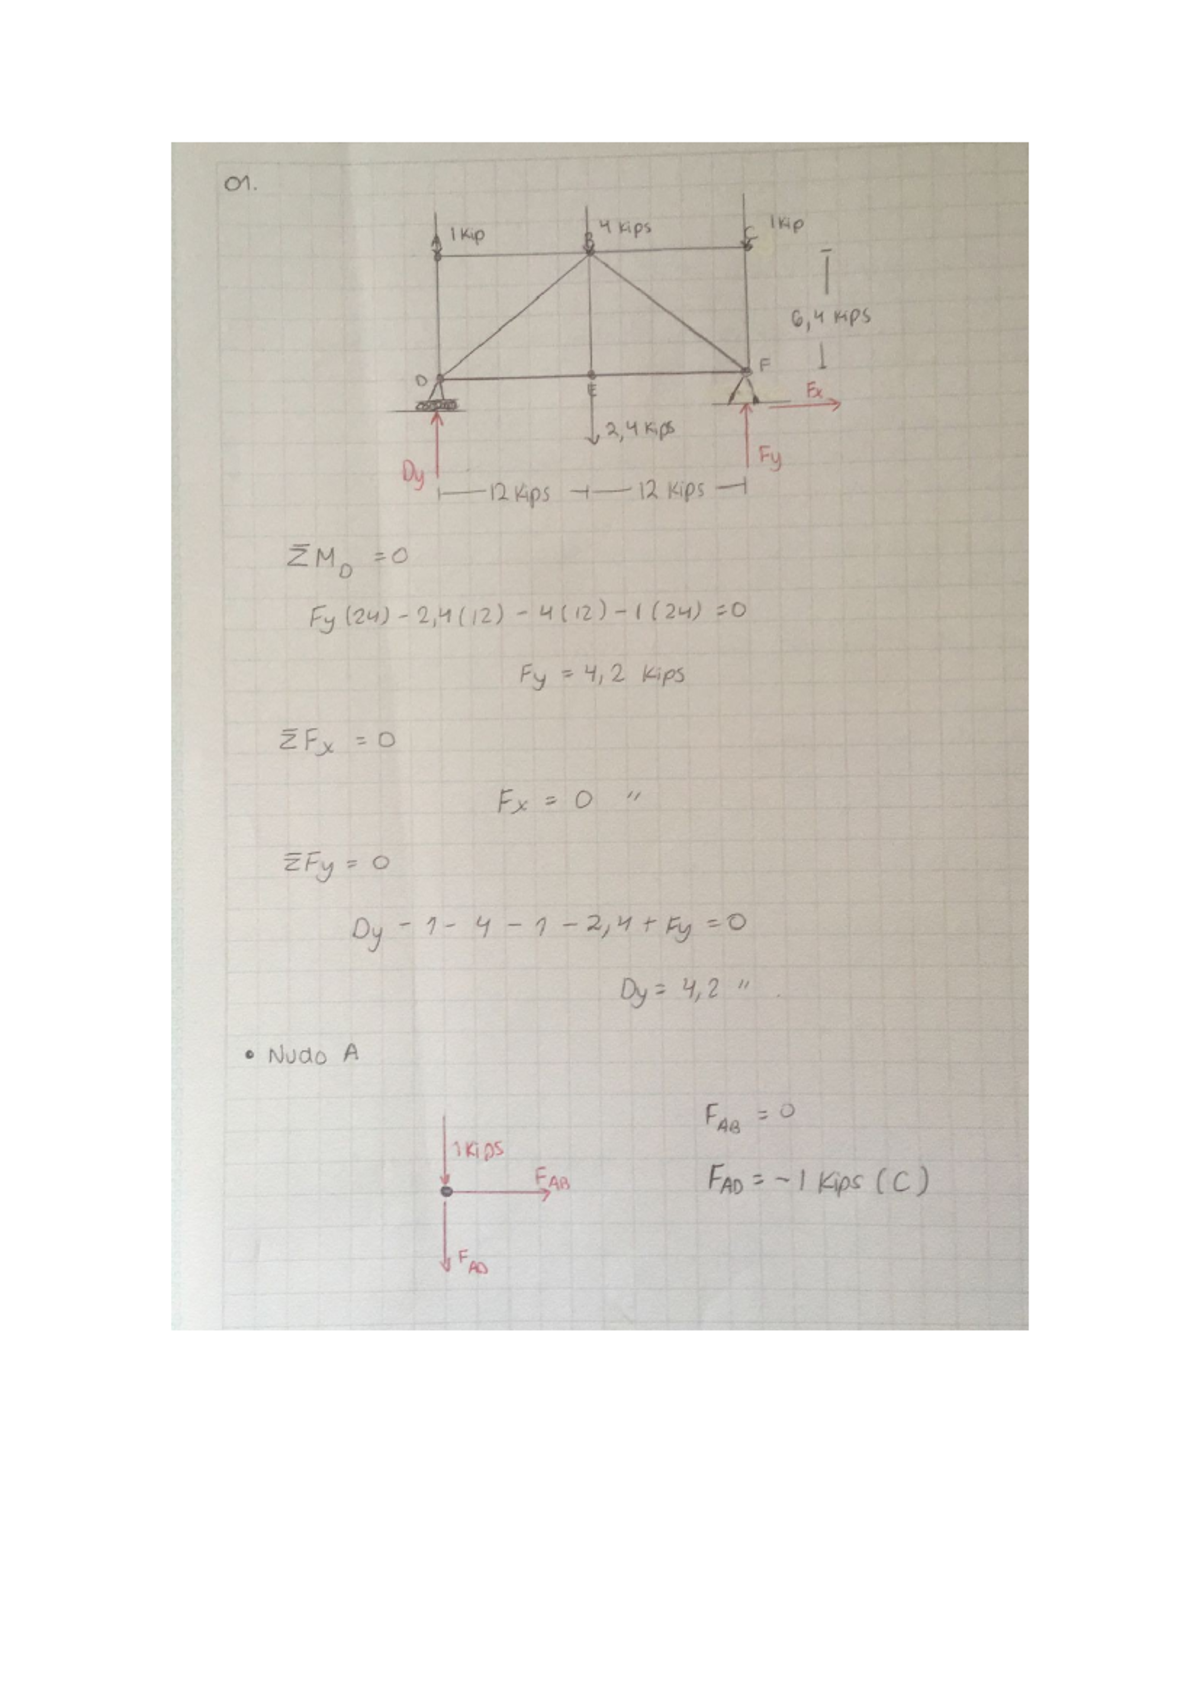 01.
1 Kip
4 Kips
1 Kip
A
B
C
6,4 Kips
D
E
F
Fx
2,4 Kips
Dy
Fy
12 Kips
12 Kips
ΣM_D = 0
Fy (24) - 2,4 (12) - 4 (12) - 1 (24) = 0
Fy = 4,2 Kips
ΣFx = 0
Fx = 0 "
ΣFy = 0
Dy - 1 - 4 - 1 - 2,4 + Fy = 0
Dy = 4,2 "
• Nudo A
F_AB = 0
1 Kips
F_AB
F_AD = -1 Kips (C)
F_AD